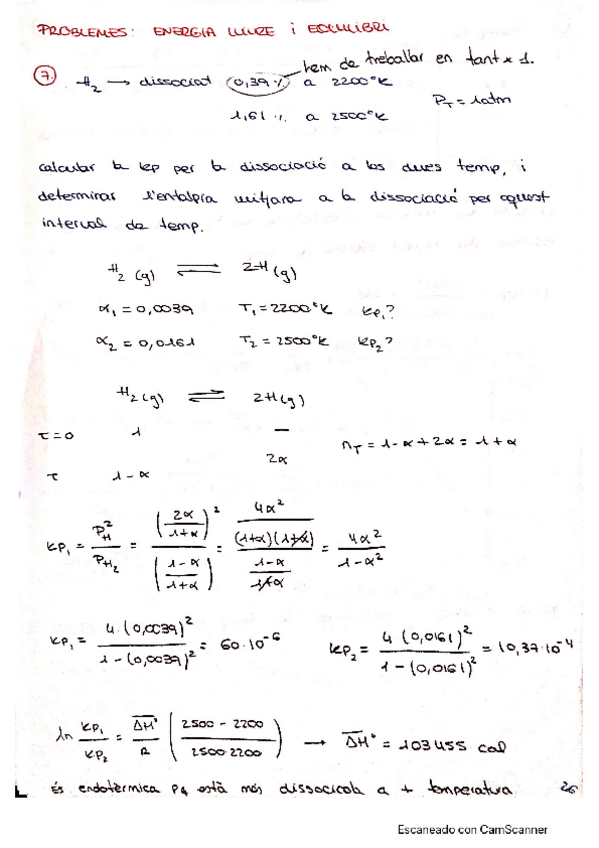 PROBLEMES: ENERGIA LLIURE i EQUILIBRI
hem de treballar en tant x 1.
7. H₂ → dissociat 0,39 % a 2200°K
P_T = 1atm
1,61 % a 2500°K
calcular la kp per la dissociació a les dues temp, i
determinar l'entalpia mitjana a la dissociació per aquest
interval de temp.
H₂ (g) ⇌ 2H (g)
α₁ = 0,0039 T₁ = 2200°K kp₁?
α₂ = 0,0161 T₂ = 2500°K kp₂?
H₂(g) ⇌ 2H(g)
τ=0 1 —
n_T = 1-α+2α = 1+α
τ 1-α 2α
kp₁ = P_H² / P_H₂ = (2α/(1+α))² / ((1-α)/(1+α)) = (4α² / ((1+α)(1+α))) / ((1-α)/(1+α)) = 4α² / (1-α²)
kp₁ = 4·(0,0039)² / (1-(0,0039)²) = 60·10⁻⁶ kp₂ = 4(0,0161)² / (1-(0,0161)²) = 10,37·10⁻⁴
ln kp₁/kp₂ = ΔH°/R ((2500 - 2200) / (2500·2200)) → ΔH° = 103455 cal
és endotèrmica pq està més dissociada a + temperatura
26
Escaneado con CamScanner